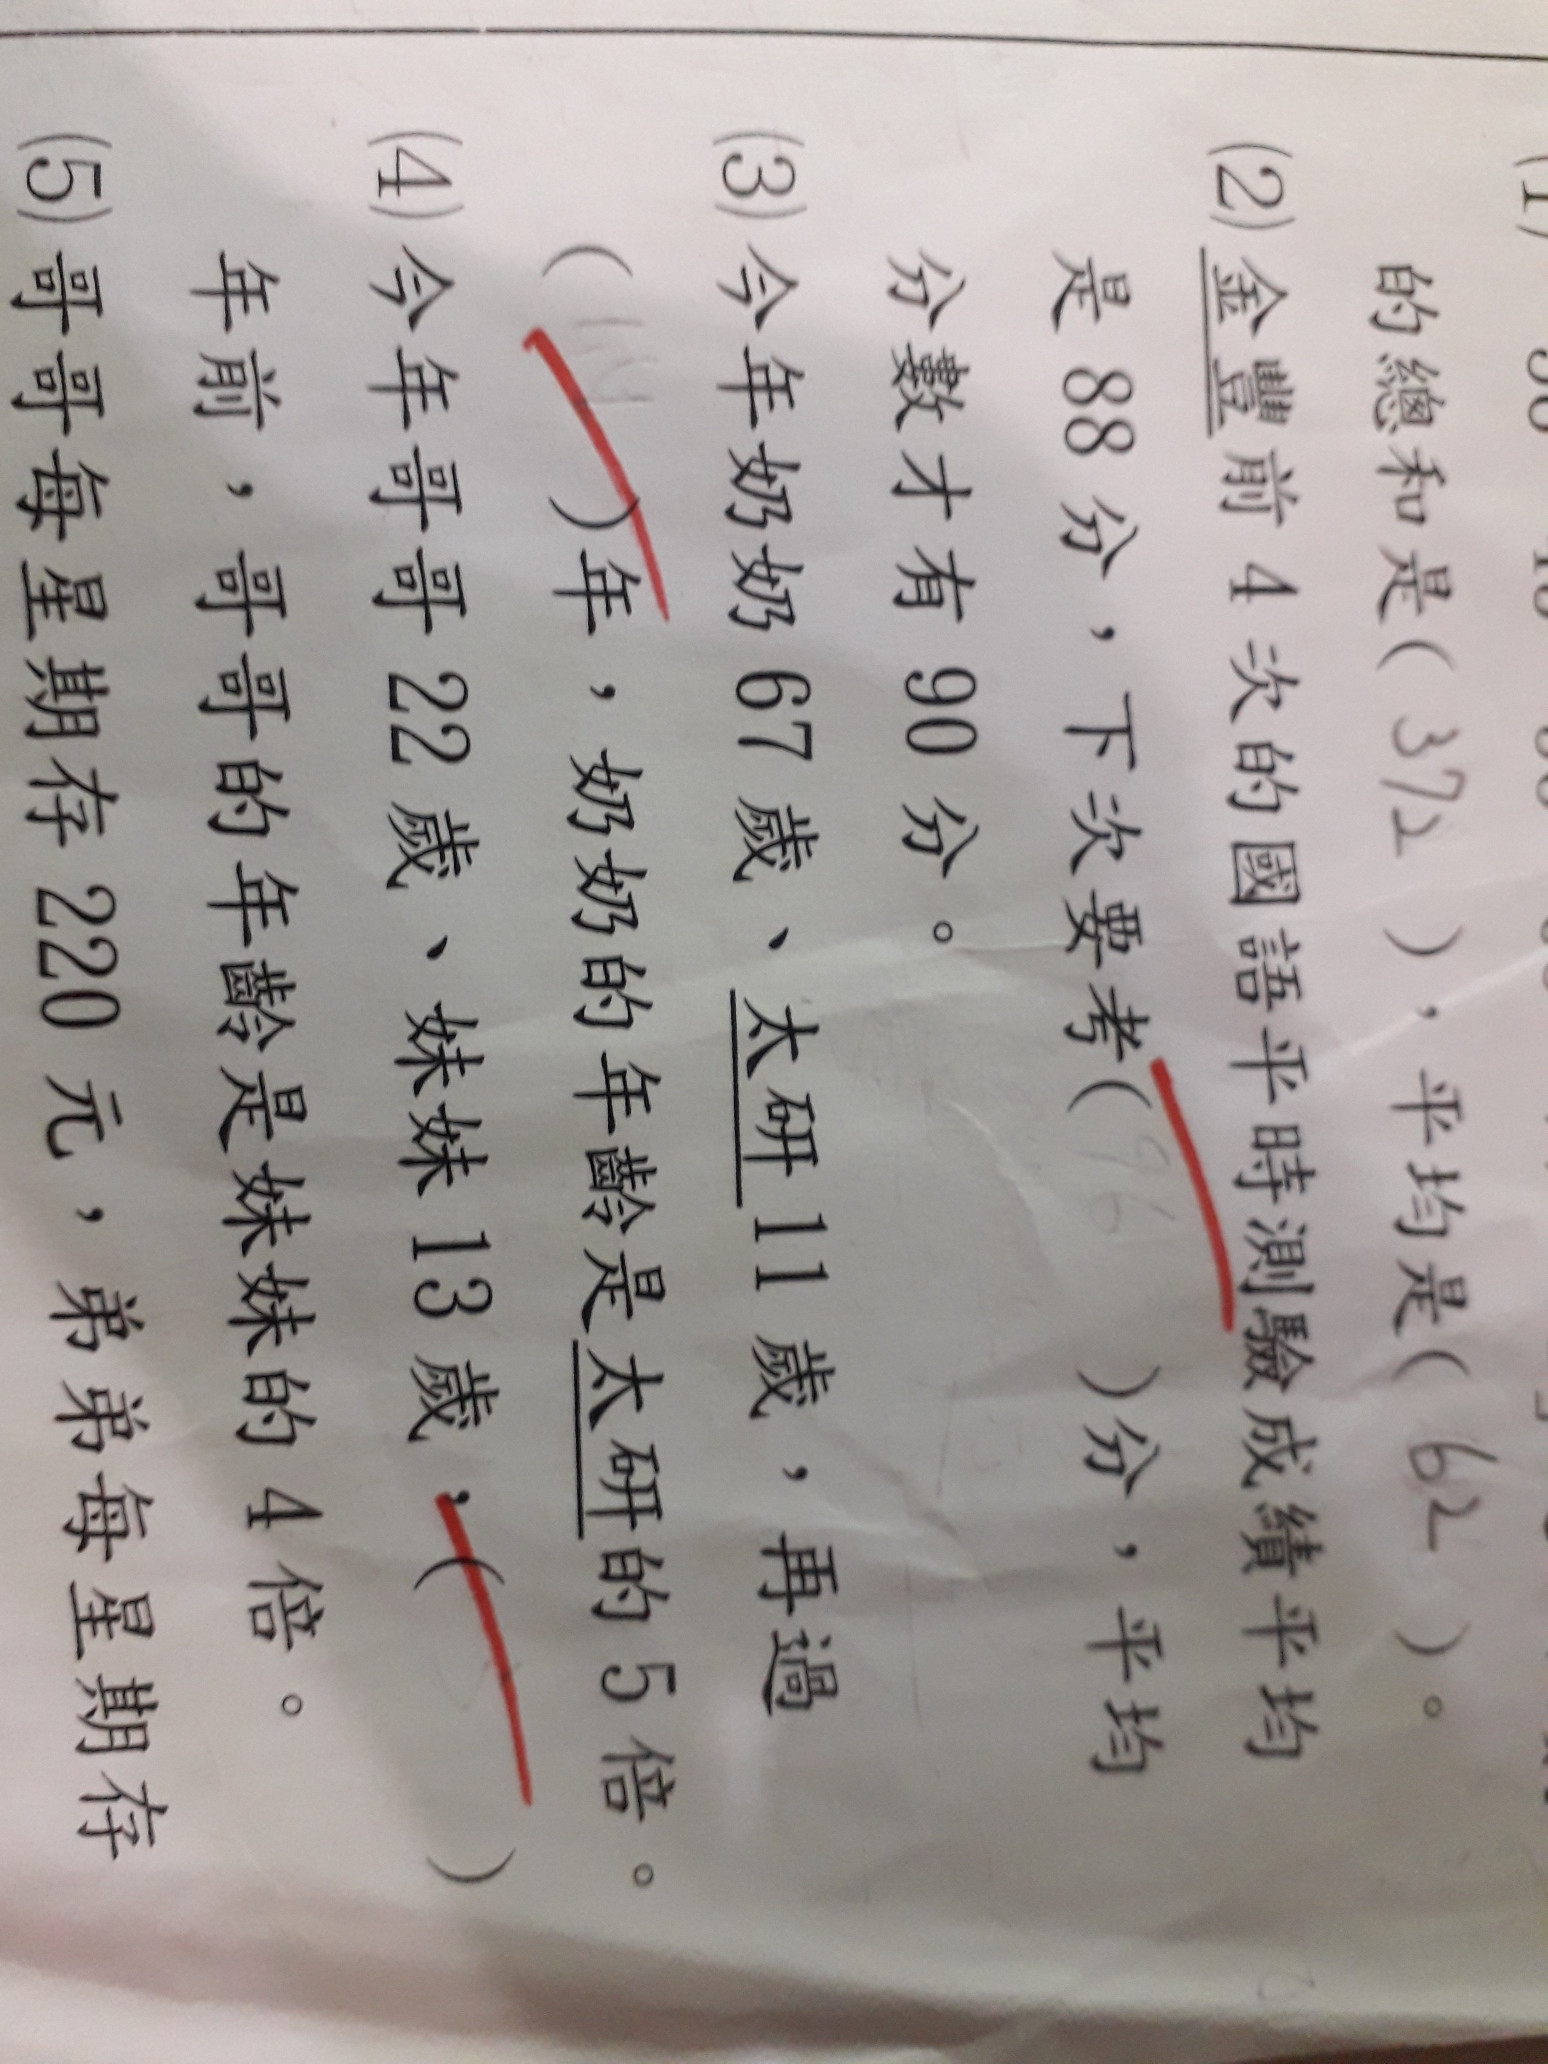 的總和是( 372 )，平均是( 62 )。
(2)金豐前 4 次的國語平時測驗成績平均
是 88 分，下次要考( 96 )分，平均
分數才有 90 分。
(3)今年奶奶 67 歲、太研 11 歲，再過
( )年，奶奶的年齡是太研的 5 倍。
(4)今年哥哥 22 歲、妹妹 13 歲，( )
年前，哥哥的年齡是妹妹的 4 倍。
(5)哥哥每星期存 220 元，弟弟每星期存